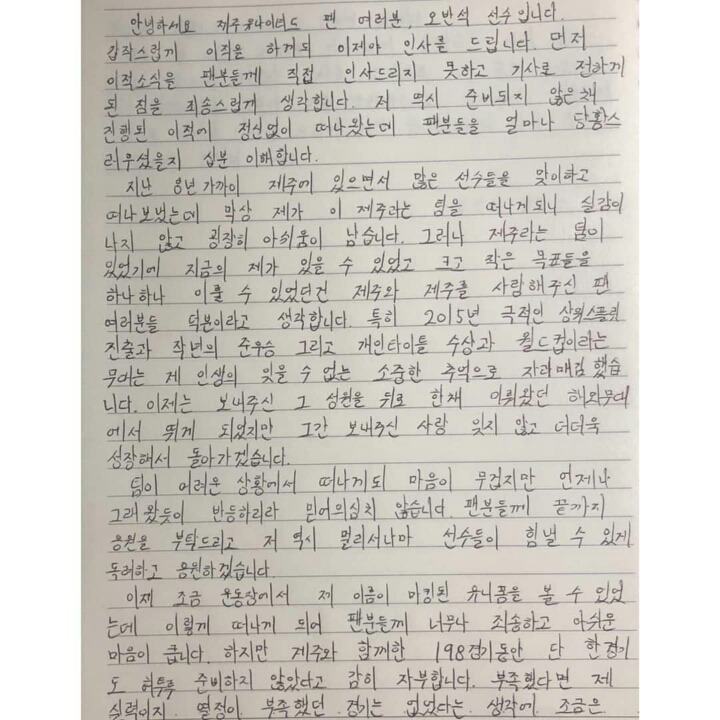 안녕하세요 제주유나이티드 팬 여러분, 오반석 선수입니다.
갑작스럽게 이적을 하게되 이제야 인사를 드립니다. 먼저
이적소식을 팬분들께 직접 인사드리지 못하고 기사로 전하게
된 점을 죄송스럽게 생각합니다. 저 역시 준비되지 않은채
진행된 이적에 정신없이 떠나왔는데 팬분들을 얼마나 당황스
러우셨을지 십분 이해합니다.
지난 8년 가까이 제주에 있으면서 많은 선수들을 맞이하고
떠나보냈는데 막상 제가 이 제주라는 팀을 떠나게되니 실감이
나지 않고 굉장히 아쉬움이 남습니다. 그러나 제주라는 팀이
있었기에 지금의 제가 있을 수 있었고 크고 작은 목표들을
하나하나 이룰 수 있었던건 제주와 제주를 사랑해주신 팬
여러분들 덕분이라고 생각합니다. 특히 2015년 극적인 상위스플릿
진출과 작년의 준우승 그리고 개인타이틀 수상과 월드컵이라는
무대는 제 인생의 잊을 수 없는 소중한 추억으로 자리매김 했습
니다. 이제는 보내주신 그 성원을 뒤로 한채 이뤄왔던 해외무대
에서 뛰게 되었지만 그간 보내주신 사랑 잊지 않고 더더욱
성장해서 돌아가겠습니다.
팀이 어려운 상황에서 떠나게되 마음이 무겁지만 언제나
그래왔듯이 반등하리라 믿어의심치 않습니다. 팬분들께 끝까지
응원을 부탁드리고 저 역시 멀리서나마 선수들이 힘낼 수 있게
독려하고 응원하겠습니다.
이제 조금 운동장에서 제 이름이 마킹된 유니폼을 볼 수 있었
는데 이렇게 떠나게 되어 팬분들께 너무나 죄송하고 아쉬운
마음이 큽니다. 하지만 제주와 함께한 198경기동안 단 한경기
도 허투루 준비하지 않았다고 감히 자부합니다. 부족했다면 제
실력이지 열정이 부족했던 경기는 없었다는 생각에 조금은